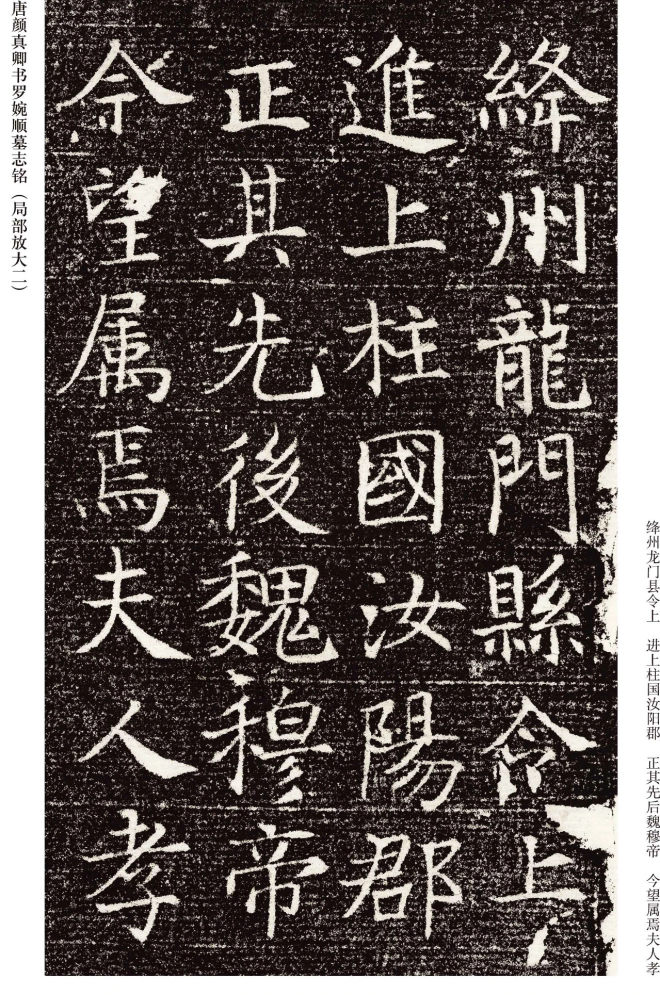 唐颜真卿书罗婉顺墓志铭（局部放大二）
绛州龙门县令上　进上柱国汝阳郡　正其先后魏穆帝　今望属焉夫人孝
絳州龍門縣令上
進上柱國汝陽郡
正其先後魏穆帝
令望属焉夫人孝